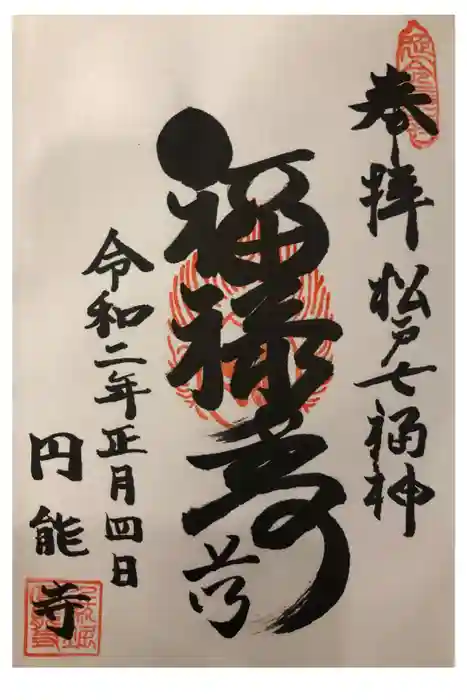 奉拝
松戸七福神
福禄寿
令和二年正月四日
円能寺